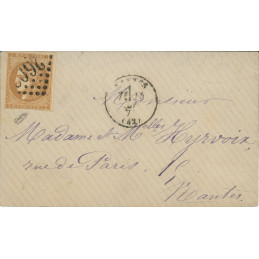 2602
NANTES
(42)
Monsieur
Madame et Melles Hyrvoix
rue de Paris
Nantes